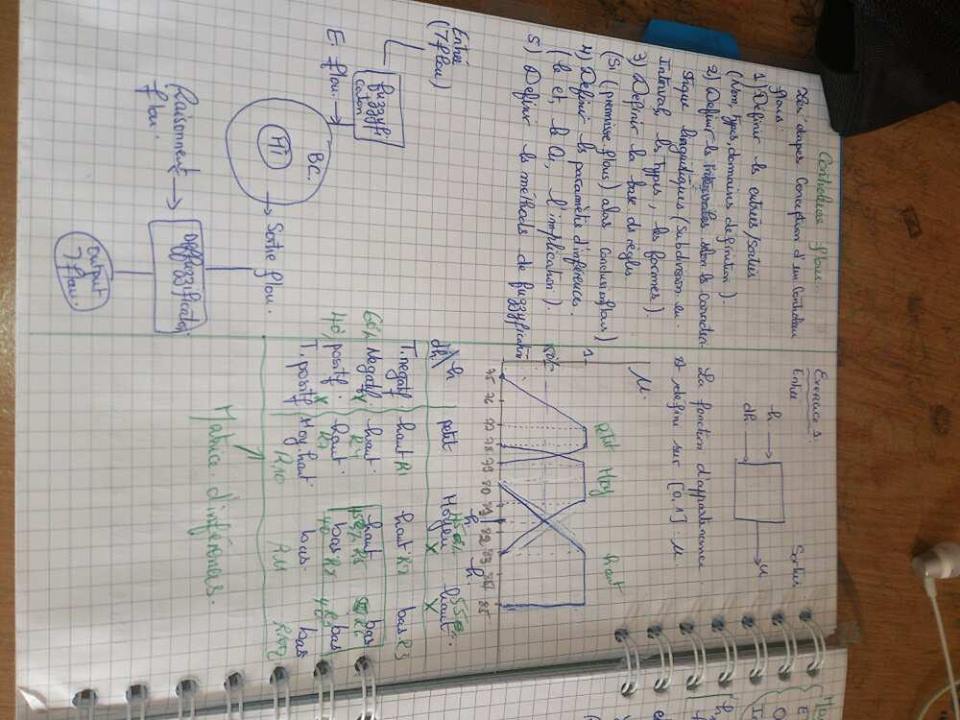 Controleur flou.
Les étapes Conception d'un Controleur
flous:
1) Définir les entrées/sorties
(Nom, types, domaines definition).
2) Définir les intervales selon les caracteri-
stique linguistiques (Subdivision en
Interval, les types, les formes).
3) Définir la base de règles
(Si (prémisse flous) alors conclusion flous)
4) Définir les paramètres d'inférences.
(le et, le Ou, l'implication).
5) Definir les méthods de fuzzyfication
Entrée
(7 flou)
fuzzyfi
cation
E. flou.
BC.
MI
Sortie flou.
Raisonnent
flou.
Deffuzzification
Output
7 flou.
Exercice 1.
Entrée
Sorties
h
dh
u
La fonction d'appartenance
est défini sur [0,1] μ.
μ.
petit Moy haut
1
75 76 77 78 79 80 81 82 83 84 85
h h
dh h petit Moyen haut
x x
T.negatif haut R1 haut R2 bas R3
60% Negatif x haut R4 haut 45% R5 bas R6
40% positif x haut R7 bas 40 R8 bas 40 R9
T.positif Moy.haut R10 bas R11 bas R12
Matrice d'inférences.